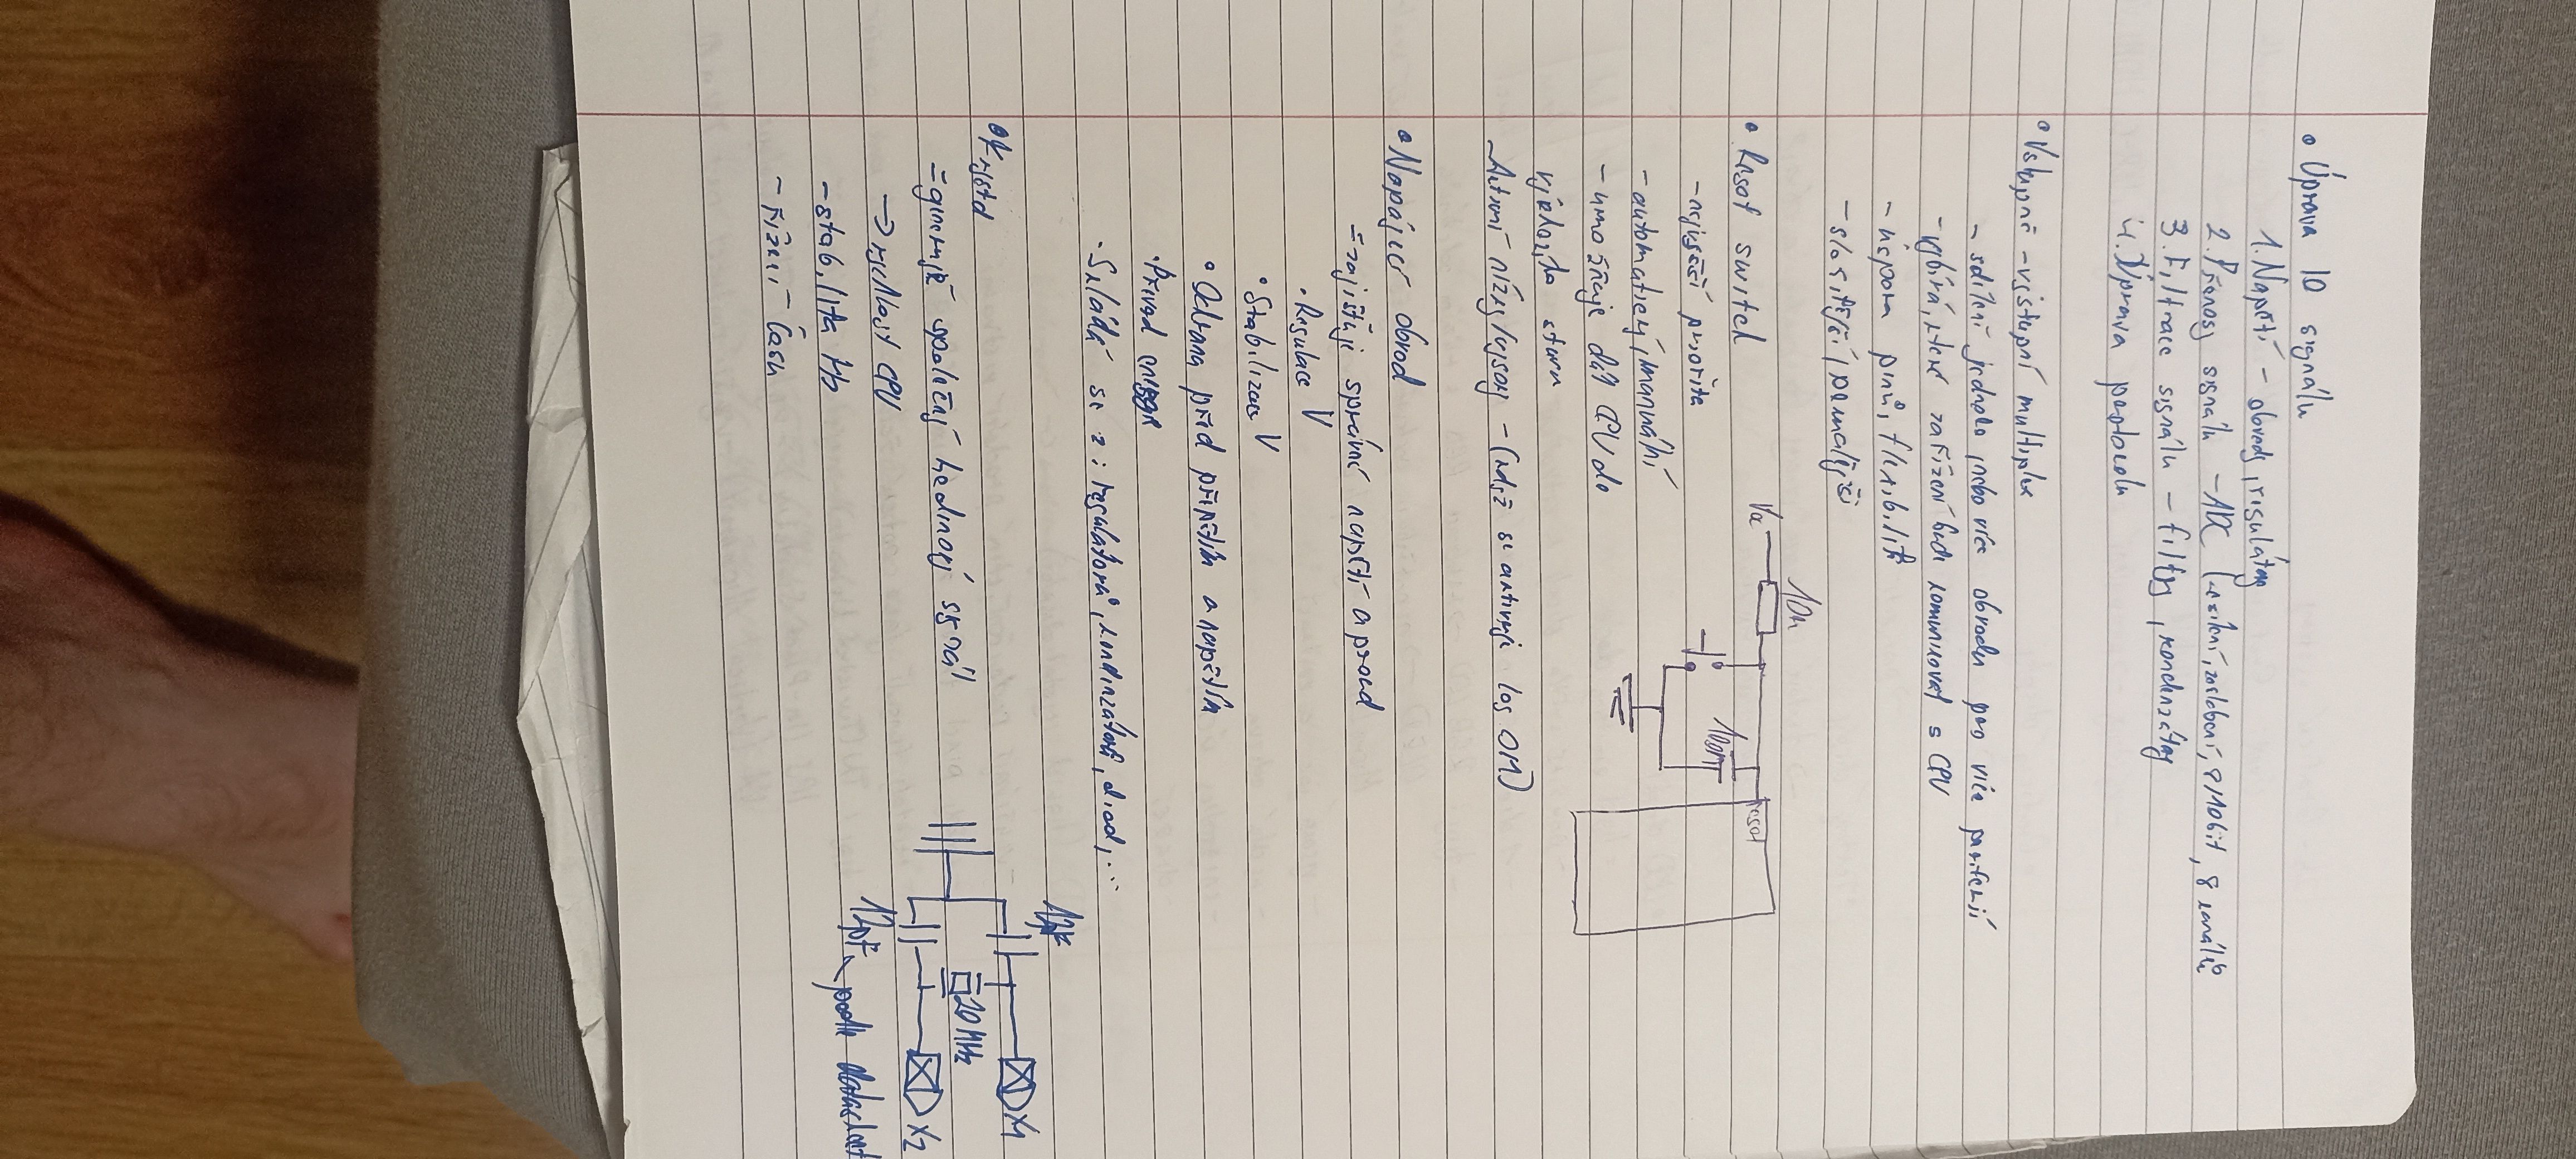 • Úprava IO signálu
1. Napětí - obvody, regulátory
2. Přenosy signálu - ADC (zesílení, zeslabení, 8/10bit, 8 kanálů
3. Filtrace signálu - filtry, kondenzátory
4. Úprava protocolu
• Vstupně - výstupní multiplex
- sdílení jednoho nebo více obvodu pro více periferií
- vybírá, které zařízení bude komunikovat s CPU
- úspora pinů, flexibilita
- složitější/pomalejší
• Reset switch
- nejvyšší priorita
- automatický/manuální
- umožňuje dát CPU do
výchozího stavu
Aktivní nízký/vysoký - (když se aktivuje log 0/1)
10k
100n
reset
• Napájecí obvod
= zajišťuje správné napětí a proud
• Regulace V
• Stabilizace V
• Ochrana před přepětím a napětím
• Přívod energie
• Skládá se z: regulátorů, kondenzátorů, diod, ...
• Krystal
= generuje společný hodinový signál
-> rychlost CPU
- stabilita Hz
- řízení času
X1
20MHz
X2
12pF
podle datasheet